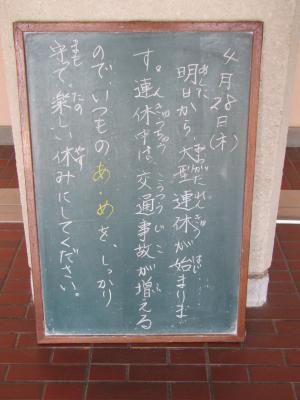 4月28日(木)
明日から、大型連休が始まりま
す。連休中は、交通事故が増える
ので、いつものあ・めを、しっかり
守って、楽しい休みにしてください。